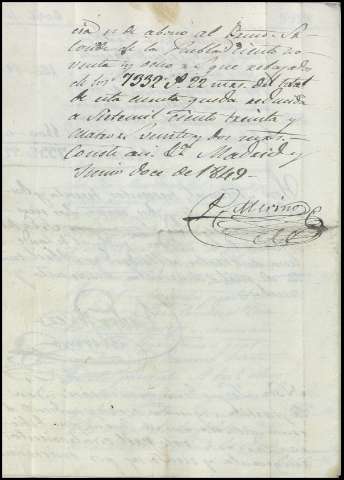 cia es de abono al Exmo. Sr.
Conde de la Puebla Ciento no
venta y ocho rs. que rebajados
de los 7332 rs. 22 mrs. del total
de esta cuenta queda reducida
a Sietemil ciento treinta y
cuatro rs. veinte y dos mrs.
Conste así. Madrid y
Junio doce de 1849.
P. Merino